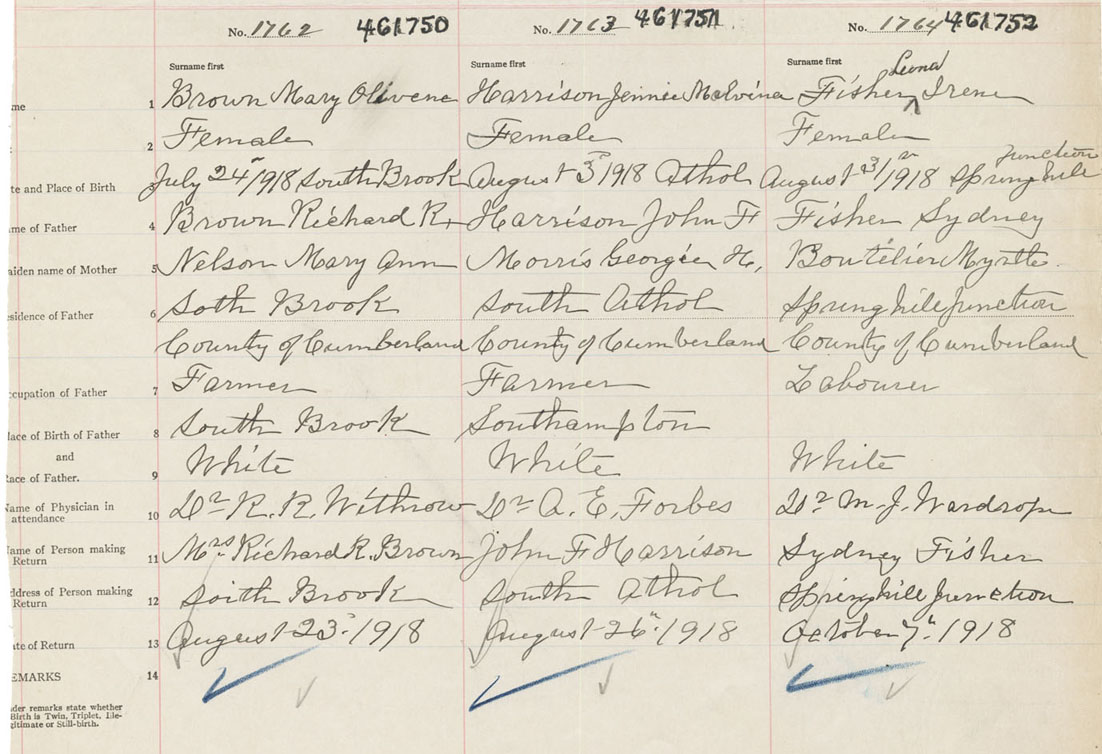 No. 1762 461750 No. 1763 461751 No. 1764 461752
Surname first Surname first Surname first
Leona
me 1 Brown Mary Olivene Harrison Jennie Malvina Fisher ^ Irene
2 Female Female Female
Junction
te and Place of Birth 3 July 24th/1918 South Brook August 3rd 1918 Athol August 23rd/1918 Springhill
me of Father 4 Brown Richard R. Harrison John F Fisher Sydney
aiden name of Mother 5 Nelson Mary Ann Morris Georgien H. Boutélier Myrtle.
esidence of Father 6 Soth Brook South Athol Springhill Junction
County of Cumberland County of Cumberland County of Cumberland
ccupation of Father 7 Farmer Farmer Labourer
lace of Birth of Father 8 South Brook Southampton
and
ace of Father. 9 White White White
ame of Physician in
attendance 10 Dr R. R. Withrow Dr A. E. Forbes Dr M. J. Wardrope
ame of Person making
Return 11 Mrs Richard R. Brown John F Harrison Sydney Fisher
ddress of Person making
Return 12 South Brook South Athol Springhill Junction
ate of Return 13 August 23rd 1918 August 26th 1918 October 7th 1918
EMARKS 14
der remarks state whether
Birth is Twin, Triplet, Ille-
gitimate or Still-birth.